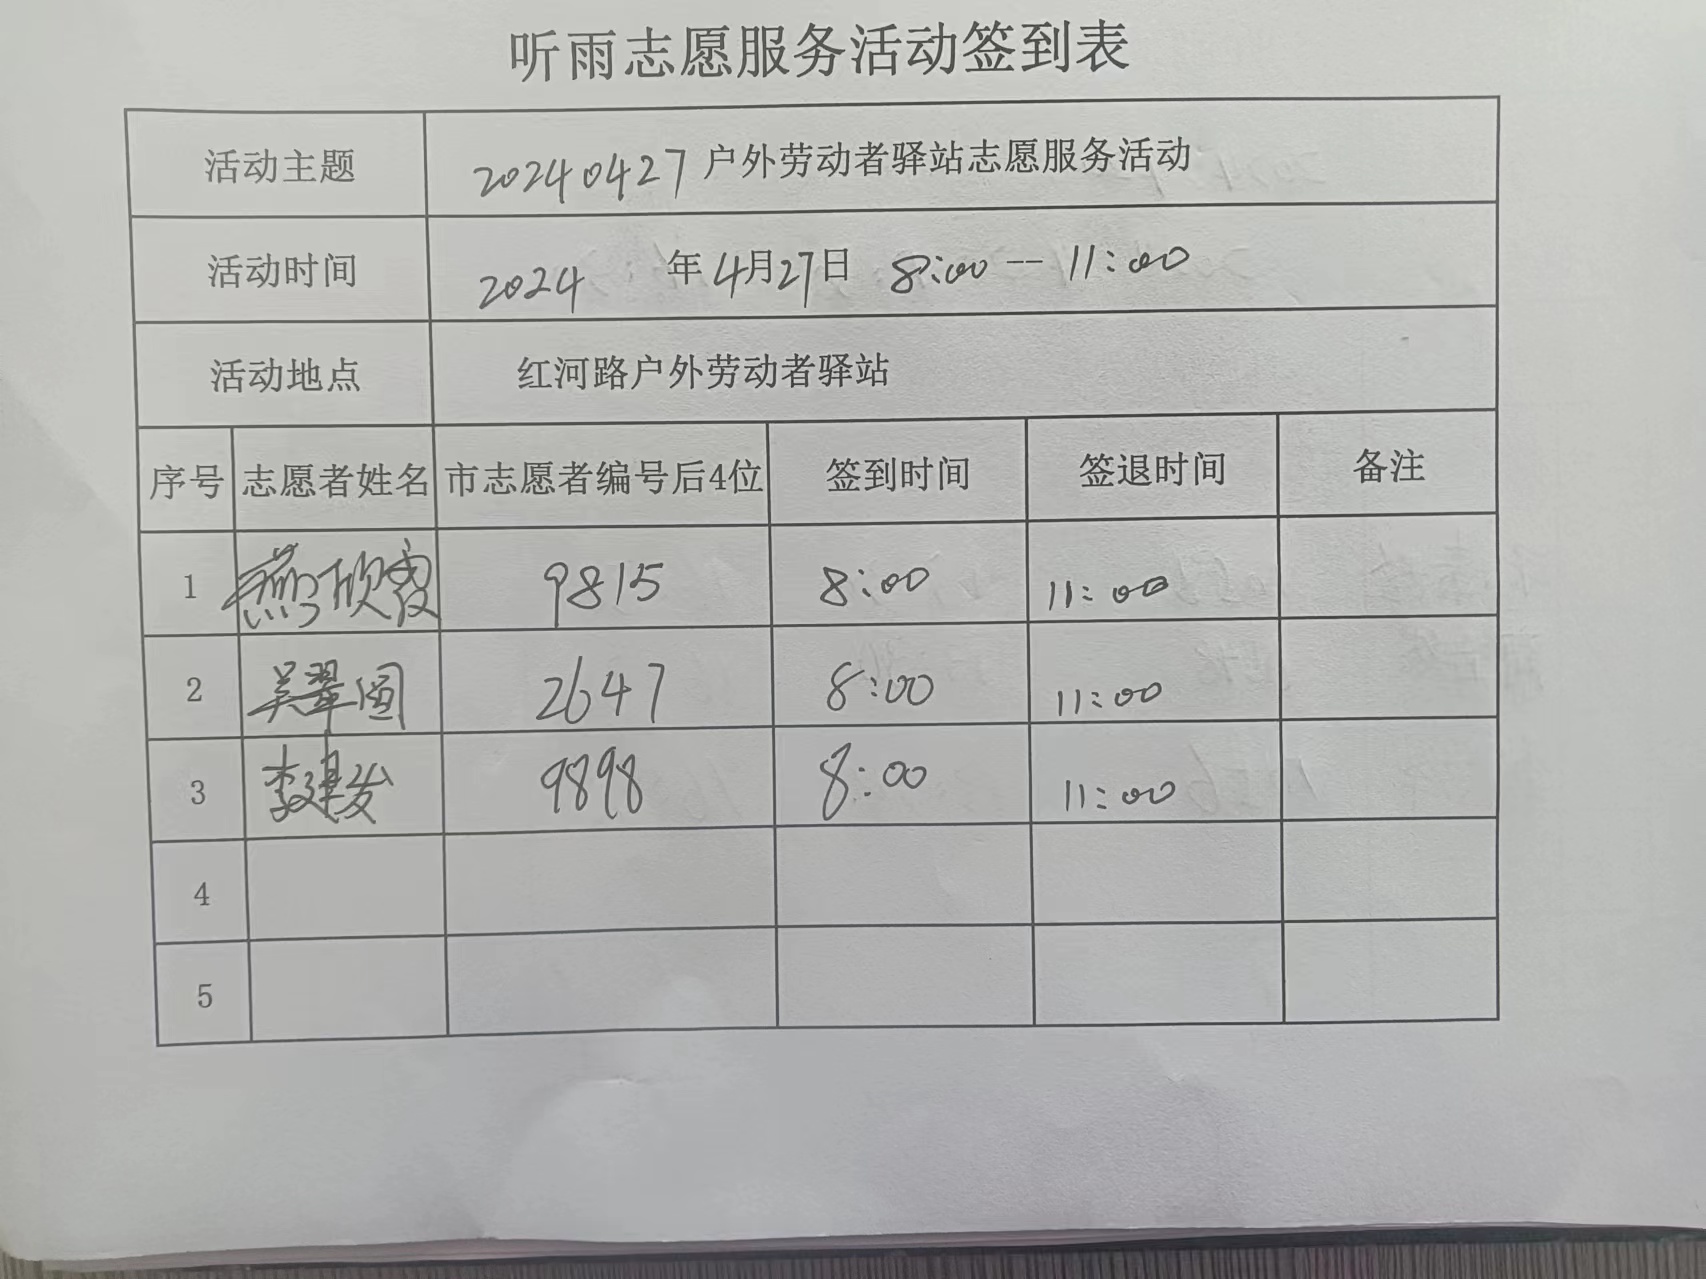 听雨志愿服务活动签到表
活动主题 20240427户外劳动者驿站志愿服务活动
活动时间 2024 年4月27日 8:00--11:00
活动地点 红河路户外劳动者驿站
序号 志愿者姓名 市志愿者编号后4位 签到时间 签退时间 备注
1 燕欣霞 9815 8:00 11:00
2 吴翠 2647 8:00 11:00
3 李建发 9898 8:00 11:00
4
5